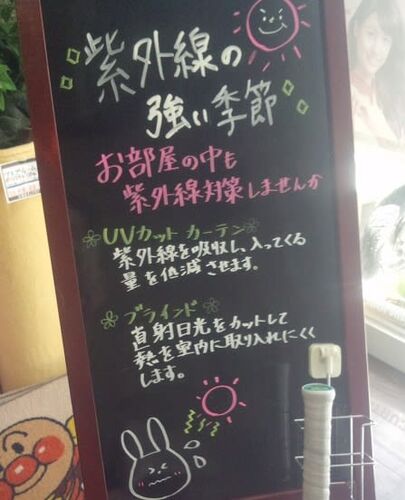 紫外線の
強い季節
お部屋の中も
紫外線対策しませんか
UVカット カーテン
紫外線を吸収し、入ってくる
量を低減させます。
ブラインド
直射日光をカットして
熱を室内に取り入れにくく
します。